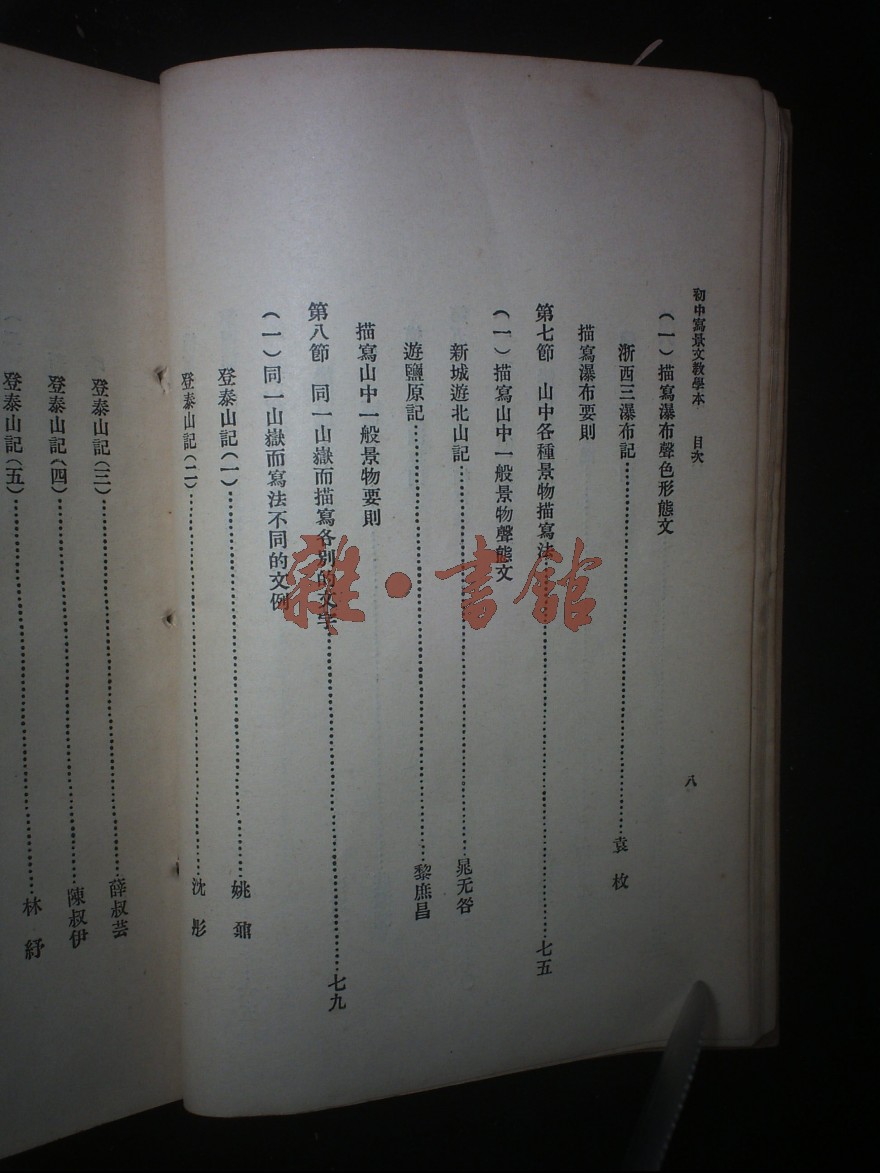 初中寫景文教學本　目次　八
（一）描寫瀑布聲色形態文
浙西三瀑布記……袁枚
描寫瀑布要則
第七節　山中各種景物描寫法……七五
（一）描寫山中一般景物聲態文
新城遊北山記……晁无咎
遊鹽原記……黎庶昌
描寫山中一般景物要則
第八節　同一山嶽而描寫各別的文字……七九
（一）同一山嶽而寫法不同的文例
登泰山記（一）……姚鼐
登泰山記（二）……沈彤
登泰山記（三）……薛叔芸
登泰山記（四）……陳叔伊
登泰山記（五）……林紓
雜·書館